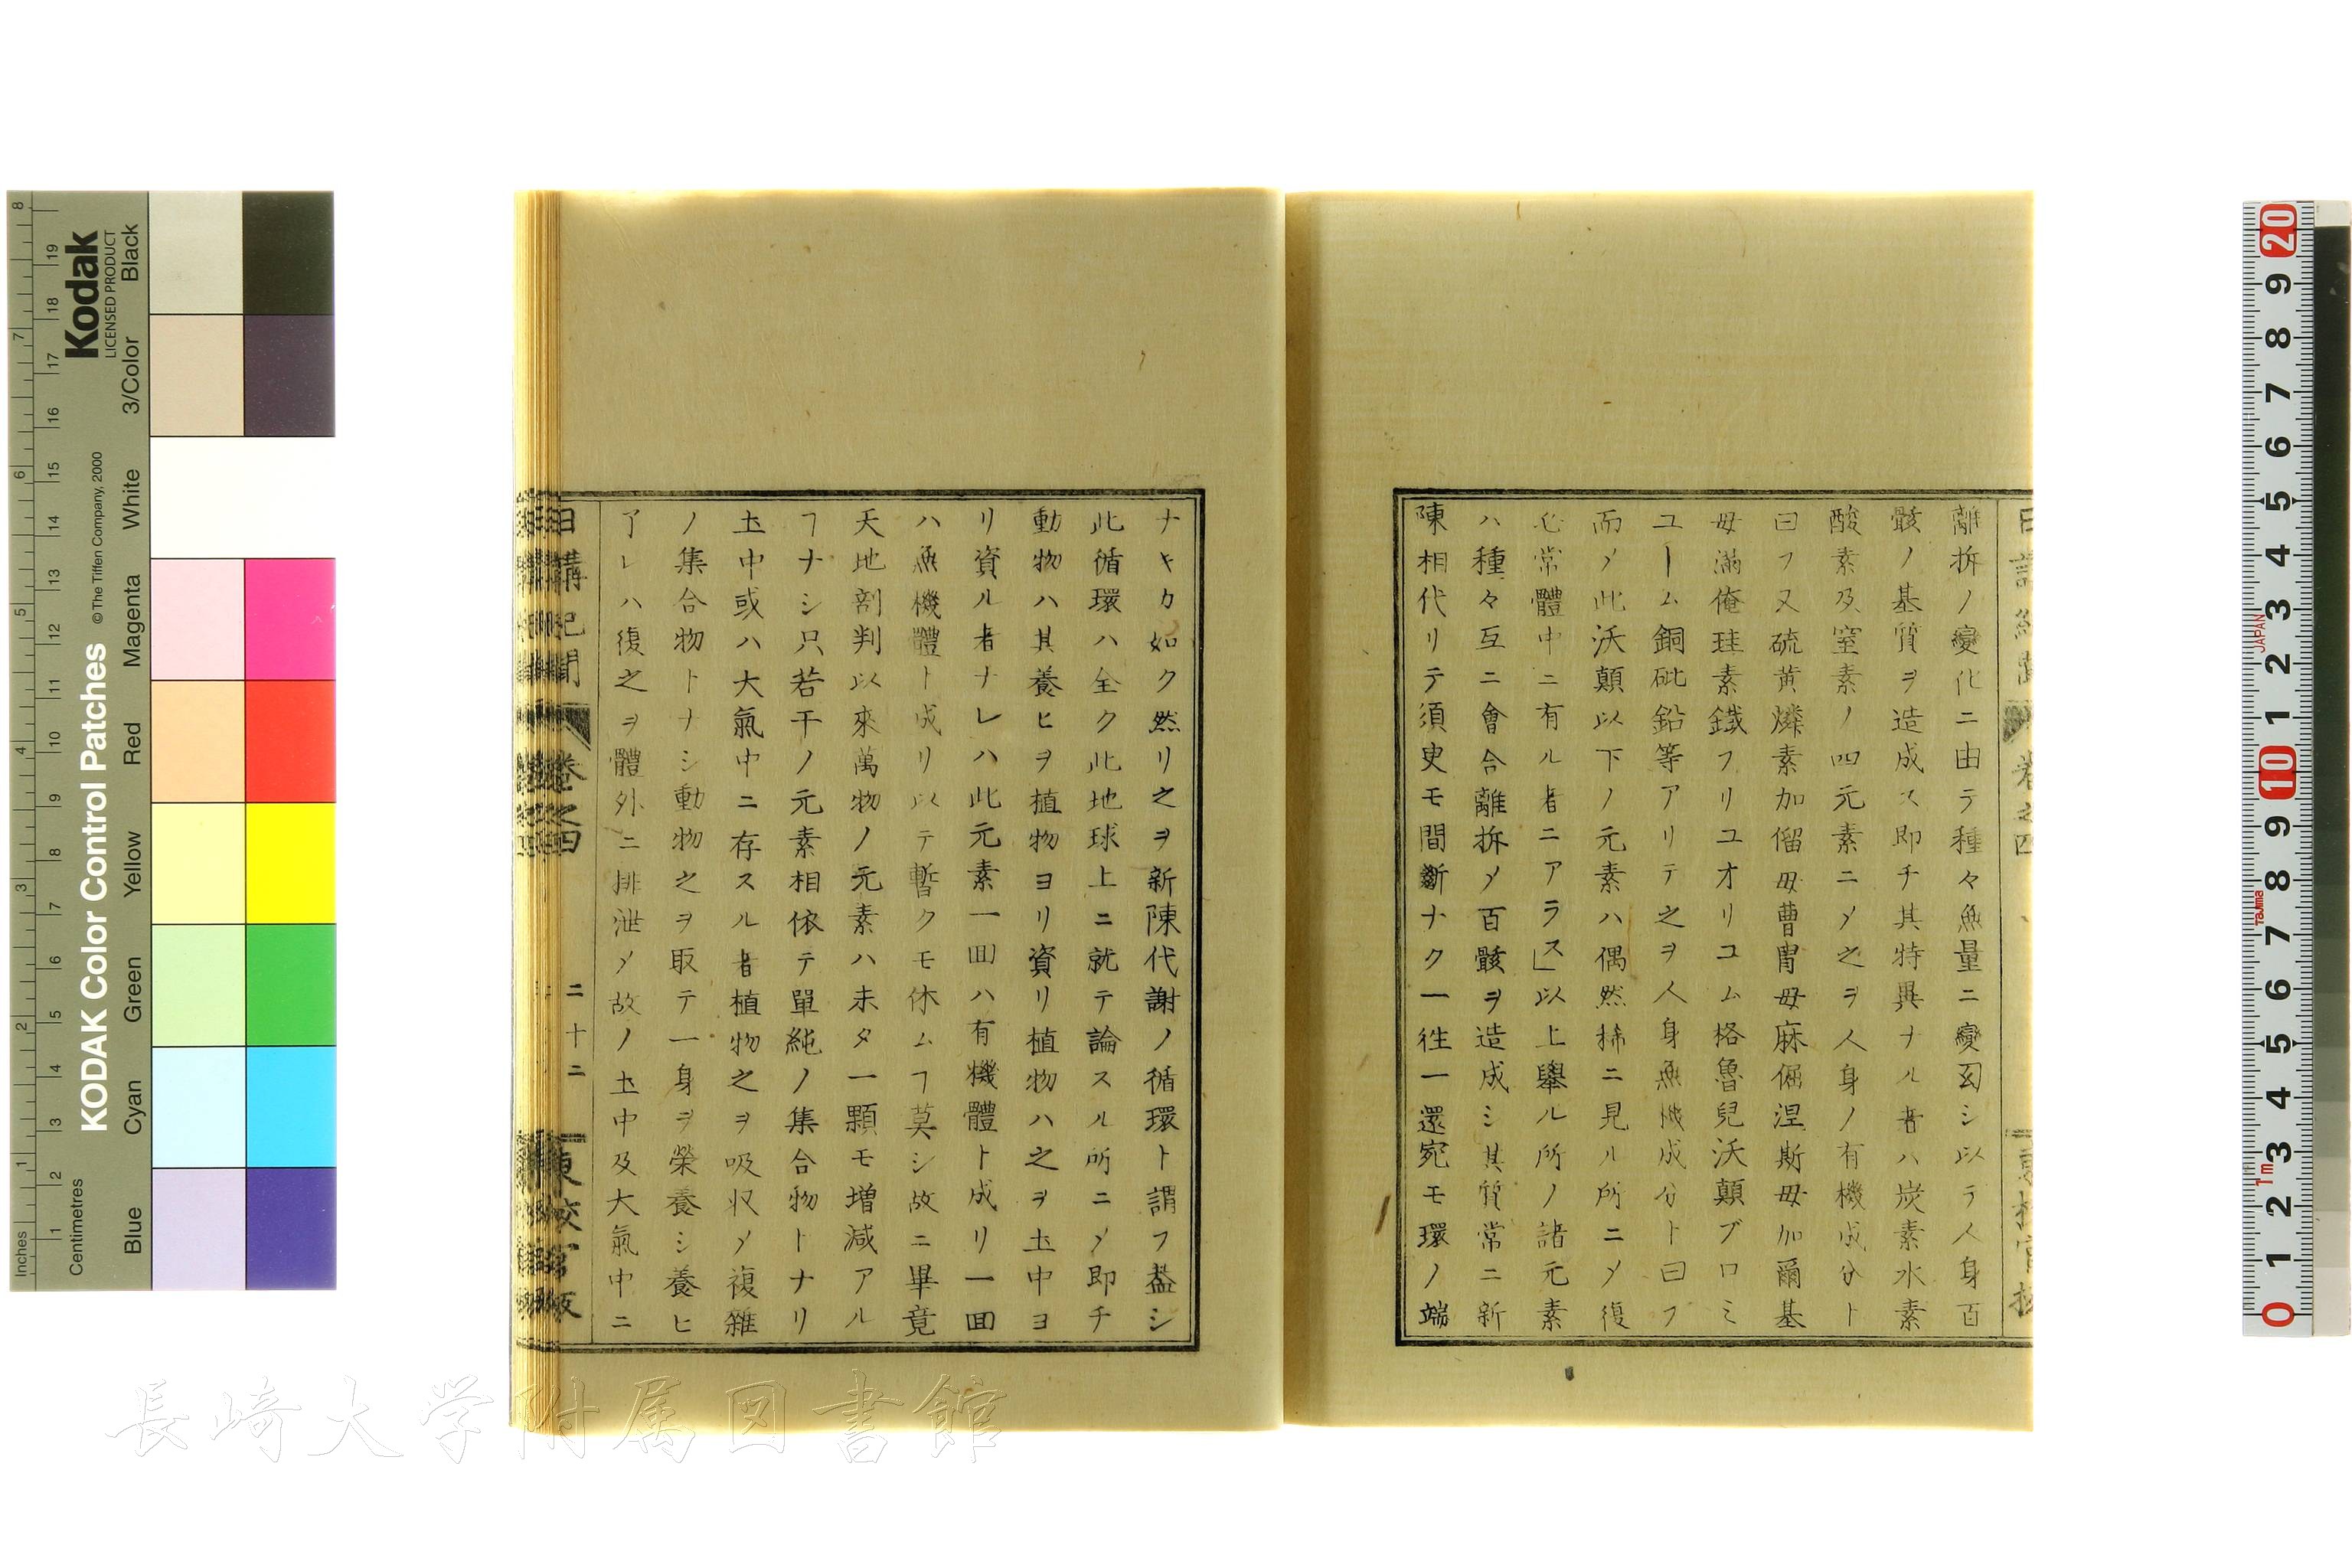 離拆ノ變化ニ由テ種々無量ニ變図シ以テ人身百
骸ノ基質ヲ造成ス即チ其特異ナル者ハ炭素水素
酸素及窒素ノ四元素ニ〆之ヲ人身ノ有機成分ト
曰フ又硫黄燐素加僧母曹冑母麻倔涅斯母加爾基
母滿俺珪素鐵フリユオリユム格魯兒沃顛ブロミ
ユーム銅砒鉛等アリテ之ヲ人身無機成分ト曰フ
而〆此沃顛以下ノ元素ハ偶然稀ニ見ル所ニ〆復
必常體中ニ有ル者ニアラス」以上擧ル所ノ諸元素
ハ種々互ニ會合離拆〆百骸ヲ造成シ其質常ニ新
陳相代リテ須叟モ間斷ナク一徃一還宛モ環ノ端
ナキカ如ク然リ之ヲ新陳代謝ノ循環ト謂フ葢シ
此循環ハ全ク此地球上ニ就テ論スル所ニ〆即チ
動物ハ其養ヒヲ植物ヨリ資リ植物ハ之ヲ土中ヨ
リ資ル者ナレハ此元素一回ハ有機體ト成リ一回
ハ無機體ト成リ以テ暫クモ休ムヿ莫シ故ニ畢竟
天地剖判以來萬物ノ元素ハ未タ一顆モ増減アル
ヿナシ只若干ノ元素相依テ單純ノ集合物トナリ
土中或ハ大氣中ニ存スル者植物之ヲ吸収〆複雜
ノ集合物トナシ動物之ヲ取テ一身ヲ榮養シ養ヒ
アレハ復之ヲ體外ニ排泄〆故ノ土中及大氣中ニ
日講記聞 卷之四 二十二 東校官版
長崎大学附属図書館
KODAK Color Control Patches © The Tiffen Company, 2000
Kodak
LICENSED PRODUCT
Inches
Centimetres
Blue Cyan Green Yellow Red Magenta White 3/Color Black
JAPAN
Tajima
1m